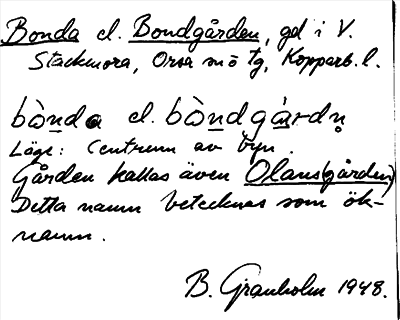 Bonda el. Bondgården, gd i V.
Stackmora, Orsa sn o tg, Kopparb. l.
bònda el. bòndgárdn̥
Läge: Centrum av byn.
Gården kallas även Olans(gården)
Detta namn betecknas som ök-
namn.
B. Granholm 1948.